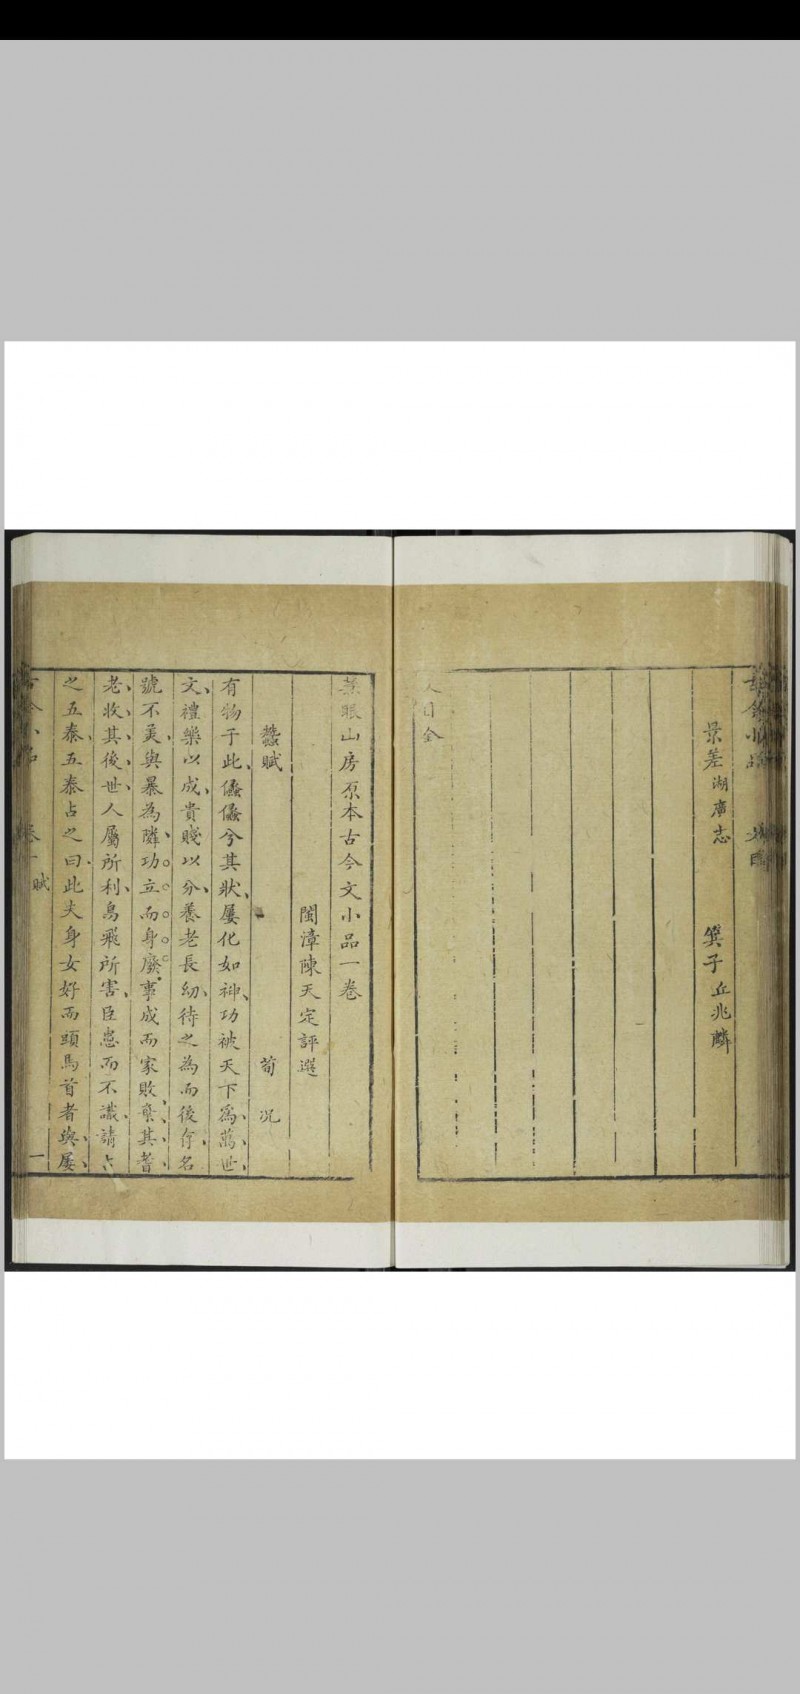 景差湖廣志　箕子丘兆麟
人目全
慧眼山房原本古今文小品一卷
閩漳陳天定評選
蠶賦　荀況
有物于此儵儵兮其狀屢化如神功被天下為萬世
文禮樂以成貴賤以分養老長幼待之為而後存名
號不美與暴為隣功立而身廢事成而家敗棄其耆
老收其後世人屬所利鳥飛所害臣愚而不識請占
之五泰五泰占之曰此夫身女好而頭馬首者與屢
古今小品　卷一　賦　一